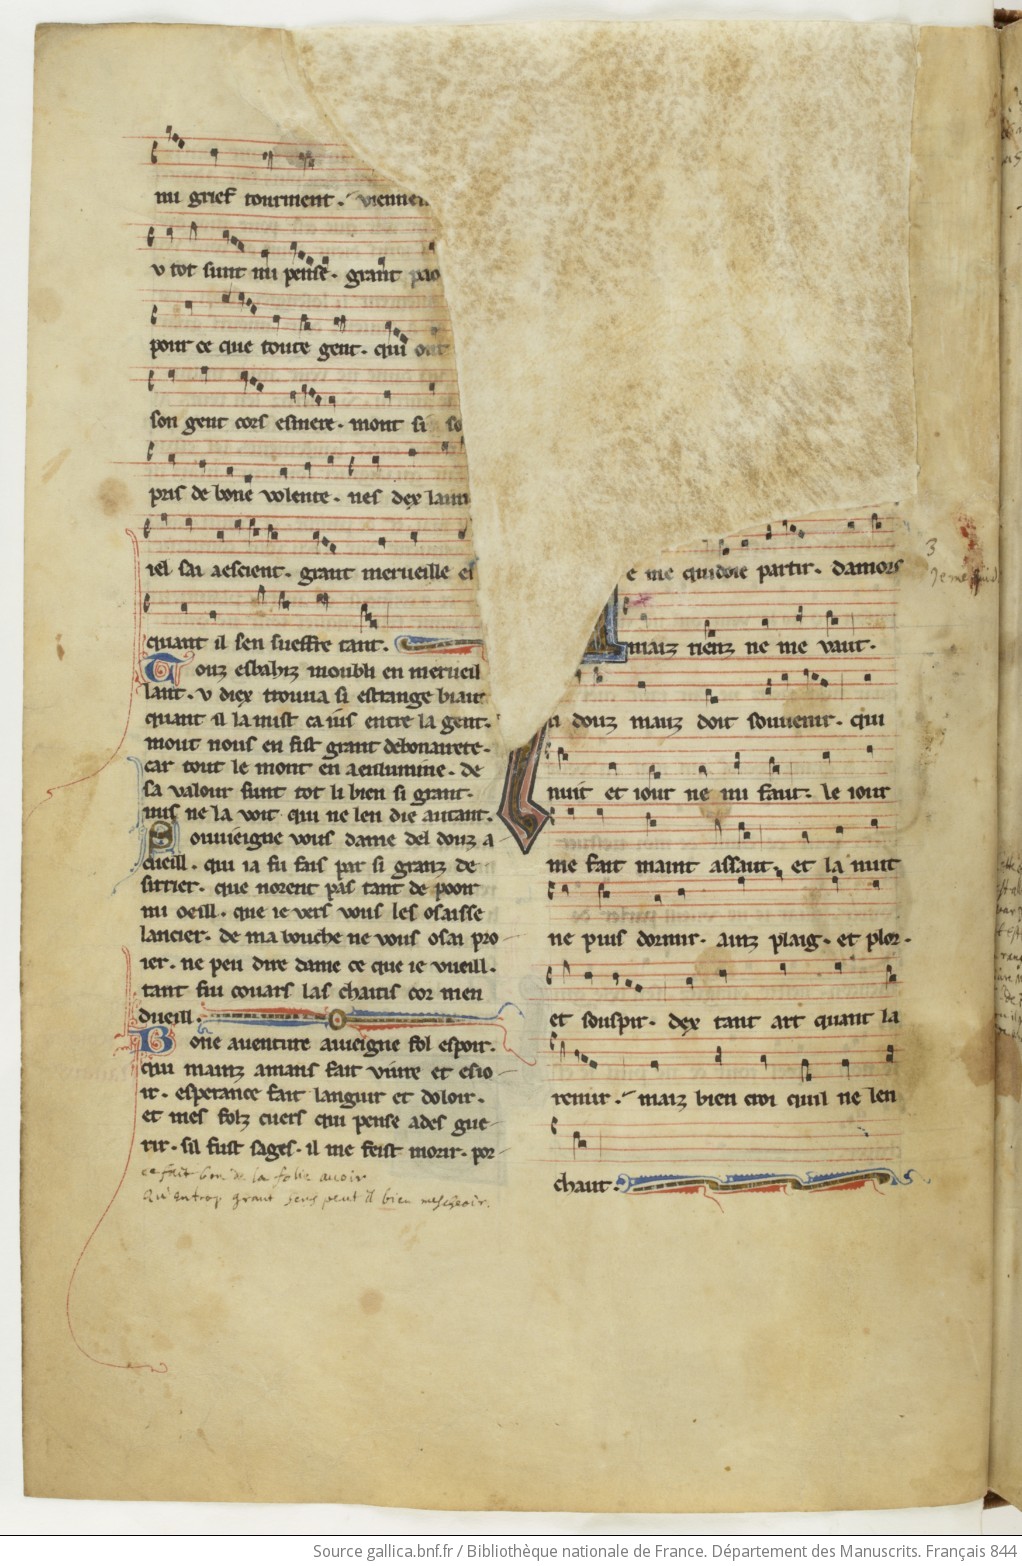 mi grief tourment. vienne
v tot sunt mi pense. grant
pour ce que toute gent. qui ont
son gent cors esmere. mont si so
pris de bone volente. nes dex
iel sai aescient. grant merueille es
quant il sen sueffre tant.
Touz esbahiz moubli en merueil
lant. v diex trouua si estrange biaut
quant il la mist ca ius entre la gent.
mout nous en fist grant debonairete.
car tout le mont en a enlumine. de
sa valour sunt tot li bien si grant.
nus ne la voit qui ne len die autant.
Souuieigne vous dame del douz a
cueill. qui ia fu fais par si granz de
sirrier. que norent pas tant de pooir
mi oeill. que ie vers vous les osaisse
lancier. de ma bouche ne vous osai pro
ier. ne peu dire dame ce que ie vueill.
tant fui couars las chaitis cor men
dueill.
Bone auenture auieigne fol espoir.
qui mainz amans fait viure et esio
ir. esperance fait languir et doloir.
et mes folz cuers qui pense ades gue
rir. sil fust sages. il me feist morir. por
ce fait bon de la folie avoir
Qu'en trop grant sens peut il bien mescheoir.
e me quidoie partir. damors
maiz rienz ne me vaut.
douz mauz doit souuenir. qui
nuit et iour ne mi faut. le iour
me fait maint assaut. et la nuit
ne puis dormir. ainz plaig. et plor.
et souspir. dex tant art quant la
remir. maiz bien croi quil ne len
chaut.
3
Je me
Source gallica.bnf.fr / Bibliothèque nationale de France. Département des Manuscrits. Français 844